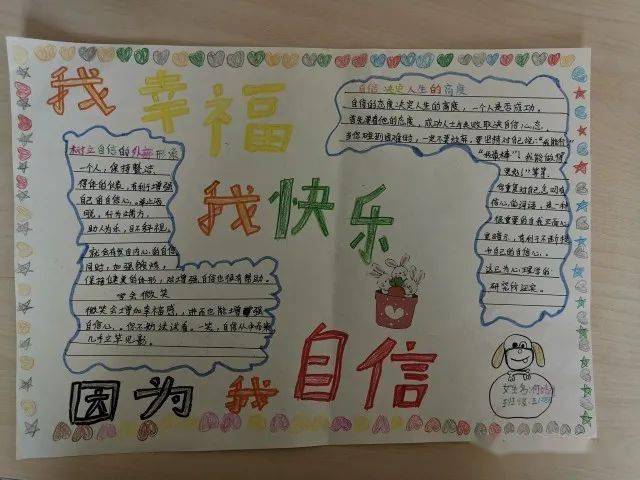 我幸福
我快乐
因为我自信
树立自信的外部形象
一个人，保持整洁
得体的仪表，有利于增强
自己的自信心。举止洒
脱，行为端方，
助人为乐，目不斜视，
就会有发自内心的自信
同时，加强锻炼，
保持健美的体形，对增强自信也很有帮助。
学会微笑
微笑会增加幸福感，进而也能增强
自信心。你不妨试试看。一笑，自信从
几乎立竿见影。
自信决定人生的高度
自信的态度决定人生的高度，一个人是否成功，
首先要看他的态度，成功人士与失败取决自信心态。
当你碰到困难时，一定不要放弃，要坚持对自己说："我能行！"
"我最棒""我能做得
更好！"等等。
经常对自己念叨自
信心的词语，是一种
很重要的自我正面心
理暗示，有利于不断提
升自己的自信心。
这已为心理学的
研究所证实。
姓名
班级